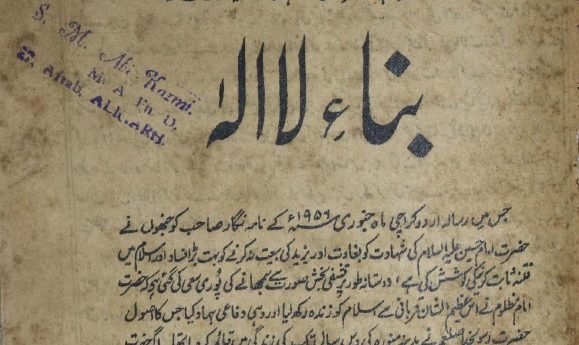 S. M. Ali Kazmi.
M. A. Ph. D.
Aftab, ALIGARH.
بناءِ لا الہٰ
جس میں رسالہ اردو کراچی ماہ جنوری ۱۹۵۶ء کے نامہ نگار صاحب کو جنھوں نے
حضرت امام حسین علیہ السلام کی شہادت کو بغاوت اور یزید کی بیعت نہ کرنے کو بہت بڑا فساد اور اسلام میں
فتنہ ثابت کرنیکی کوشش کی ہے، دوستانہ طور پر تشفی بخش صورت سے سمجھانے کی پوری سعی کی گئی ہے کہ حضرت
امام مظلوم نے اس عظیم الشان قربانی سے اسلام کو زندہ رکھ لیا اور وہی دفاعی جہاد کیا جس کا اصول
حضرت رسول خدا صلعم نے مدینہ منورہ کی دس سالہ